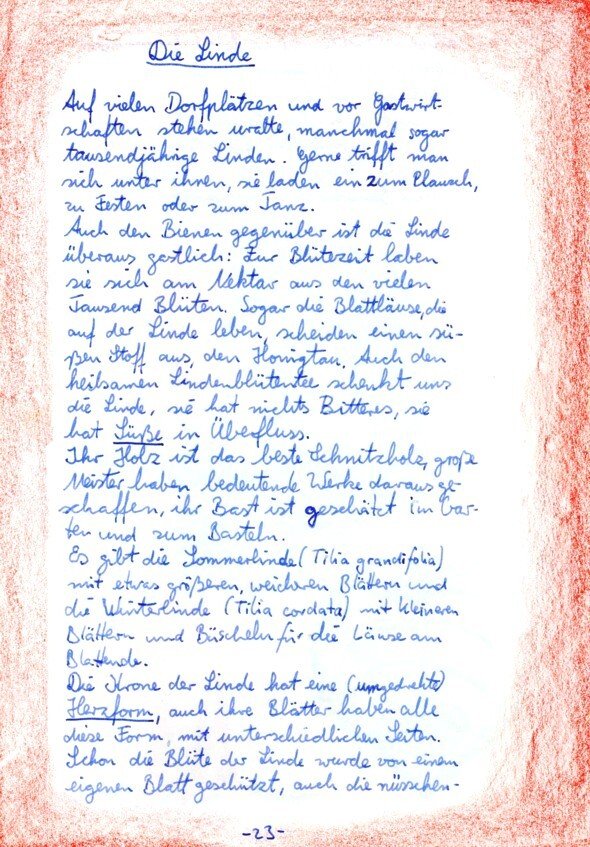 Die Linde
Auf vielen Dorfplätzen und vor Gastwirt-
schaften stehen uralte, manchmal sogar
tausendjährige Linden. Gerne trifft man
sich unter ihnen, sie laden ein zum Plausch,
zu Festen oder zum Tanz.
Auch den Bienen gegenüber ist die Linde
überaus gastlich: Zur Blütezeit laben
sie sich am Nektar aus den vielen
Tausend Blüten. Sogar die Blattläuse, die
auf der Linde leben, scheiden einen sü-
ßen Stoff aus, den Honigtau. Auch den
heilsamen Lindenblütentee schenkt uns
die Linde, sie hat nichts Bitteres, sie
hat Süße in Überfluss.
Ihr Holz ist das beste Schnitzholz, große
Meister haben bedeutende Werke daraus ge-
schaffen, ihr Bast ist geschätzt im Gar-
ten und zum Basteln.
Es gibt die Sommerlinde (Tilia grandifolia)
mit etwas größeren, weicheren Blättern und
die Winterlinde (Tilia cordata) mit kleineren
Blättern und Büscheln für die Läuse am
Blattende.
Die Krone der Linde hat eine (umgedrehte)
Herzform, auch ihre Blätter haben alle
diese Form, mit unterschiedlichen Seiten.
Schon die Blüte der Linde wurde von einem
eigenen Blatt geschützt, auch die nüsschen-
-23-